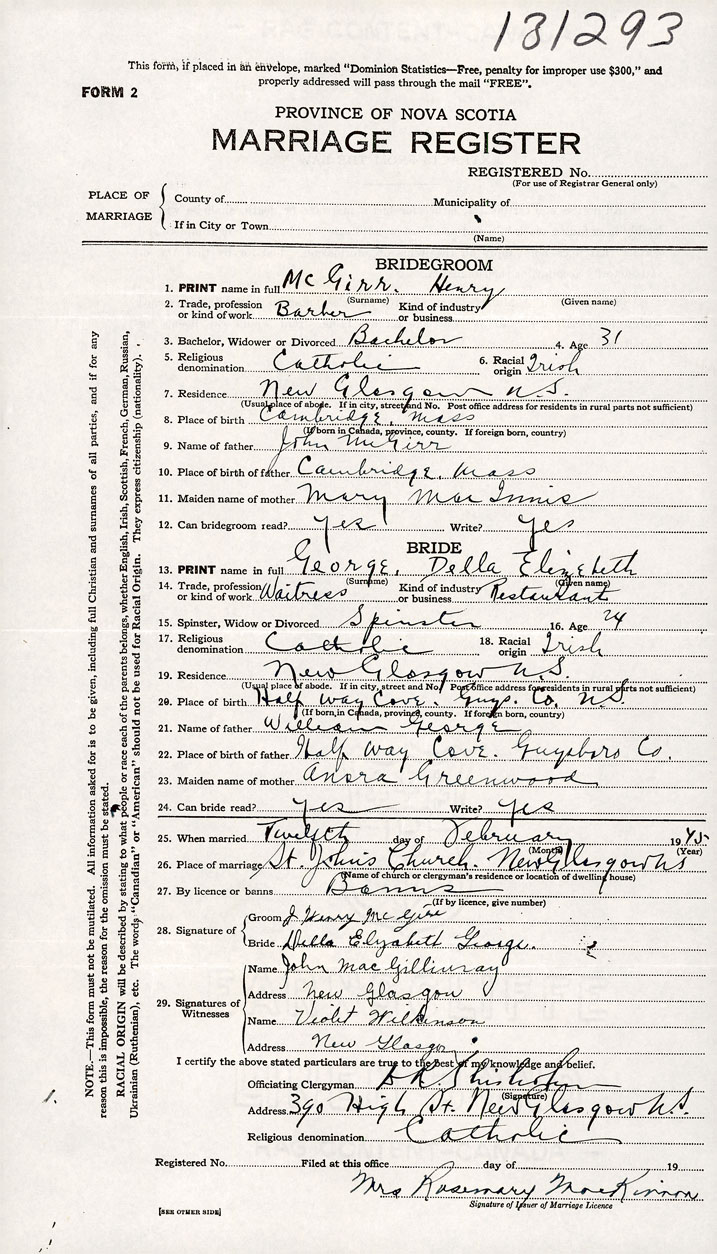 131293
This form, if placed in an envelope, marked "Dominion Statistics—Free, penalty for improper use $300," and
properly addressed will pass through the mail "FREE".
FORM 2
PROVINCE OF NOVA SCOTIA
MARRIAGE REGISTER
REGISTERED No.
(For use of Registrar General only)
PLACE OF MARRIAGE
County of Municipality of
If in City or Town
(Name)
BRIDEGROOM
1. PRINT name in full McGirr. Henry
(Surname) (Given name)
2. Trade, profession or kind of work Barber Kind of industry or business
3. Bachelor, Widower or Divorced Bachelor 4. Age 31
5. Religious denomination Catholic 6. Racial origin Irish
7. Residence New Glasgow N.S.
(Usual place of abode. If in city, street and No. Post office address for residents in rural parts not sufficient)
8. Place of birth Cambridge, Mass
(If born in Canada, province, county. If foreign born, country)
9. Name of father John McGirr
10. Place of birth of father Cambridge, Mass
11. Maiden name of mother Mary MacInnis
12. Can bridegroom read? Yes Write? Yes
BRIDE
13. PRINT name in full George, Della Elizebeth
(Surname) (Given name)
14. Trade, profession or kind of work Waitress Kind of industry or business Restaurant
15. Spinster, Widow or Divorced Spinster 16. Age 24
17. Religious denomination Catholic 18. Racial origin Irish
19. Residence New Glasgow N.S.
(Usual place of abode. If in city, street and No. Post office address for residents in rural parts not sufficient)
20. Place of birth Half Way Cove. Guys. Co. N.S.
(If born in Canada, province, county. If foreign born, country)
21. Name of father William George
22. Place of birth of father Half Way Cove. Guysboro Co.
23. Maiden name of mother Greenwood
24. Can bride read? Yes Write? Yes
25. When married Twelfth day of February 1945
(Month) (Year)
26. Place of marriage St. John's Church. New Glasgow NS
(Name of church or clergyman's residence or location of dwelling house)
27. By licence or banns Banns
(If by licence, give number)
28. Signature of
Groom J Henry McGirr
Bride Della Elyzabeth George.
29. Signatures of Witnesses
Name John MacGillivray
Address New Glasgow
Name Violet Wilkinson
Address New Glasgow
I certify the above stated particulars are true to the best of my knowledge and belief.
Officiating Clergyman Chisholm
(Signature)
Address 390 High St. New Glasgow N.S.
Religious denomination Catholic
Registered No. Filed at this office day of 19
Mrs Rosemary MacKinnon
Signature of Issuer of Marriage Licence
[SEE OTHER SIDE]
NOTE.—This form must not be mutilated. All information asked for is to be given, including full Christian and surnames of all parties, and if for any
reason this is impossible, the reason for the omission must be stated.
RACIAL ORIGIN will be described by stating to what people or race each of the parents belongs, whether English, Irish, Scottish, French, German, Russian,
Ukrainian (Ruthenian), etc. The words "Canadian" or "American" should not be used for Racial Origin. They express citizenship (nationality).